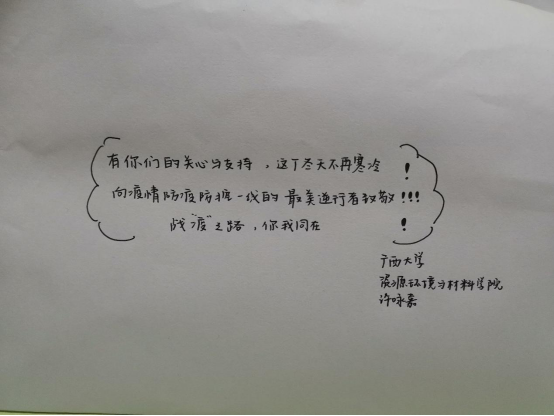 有你们的关心与支持，这个冬天不再寒冷！
向疫情防疫防控一线的最美逆行者致敬!!!
战“疫”之路，你我同在！
广西大学
资源环境与材料学院
许咏嘉